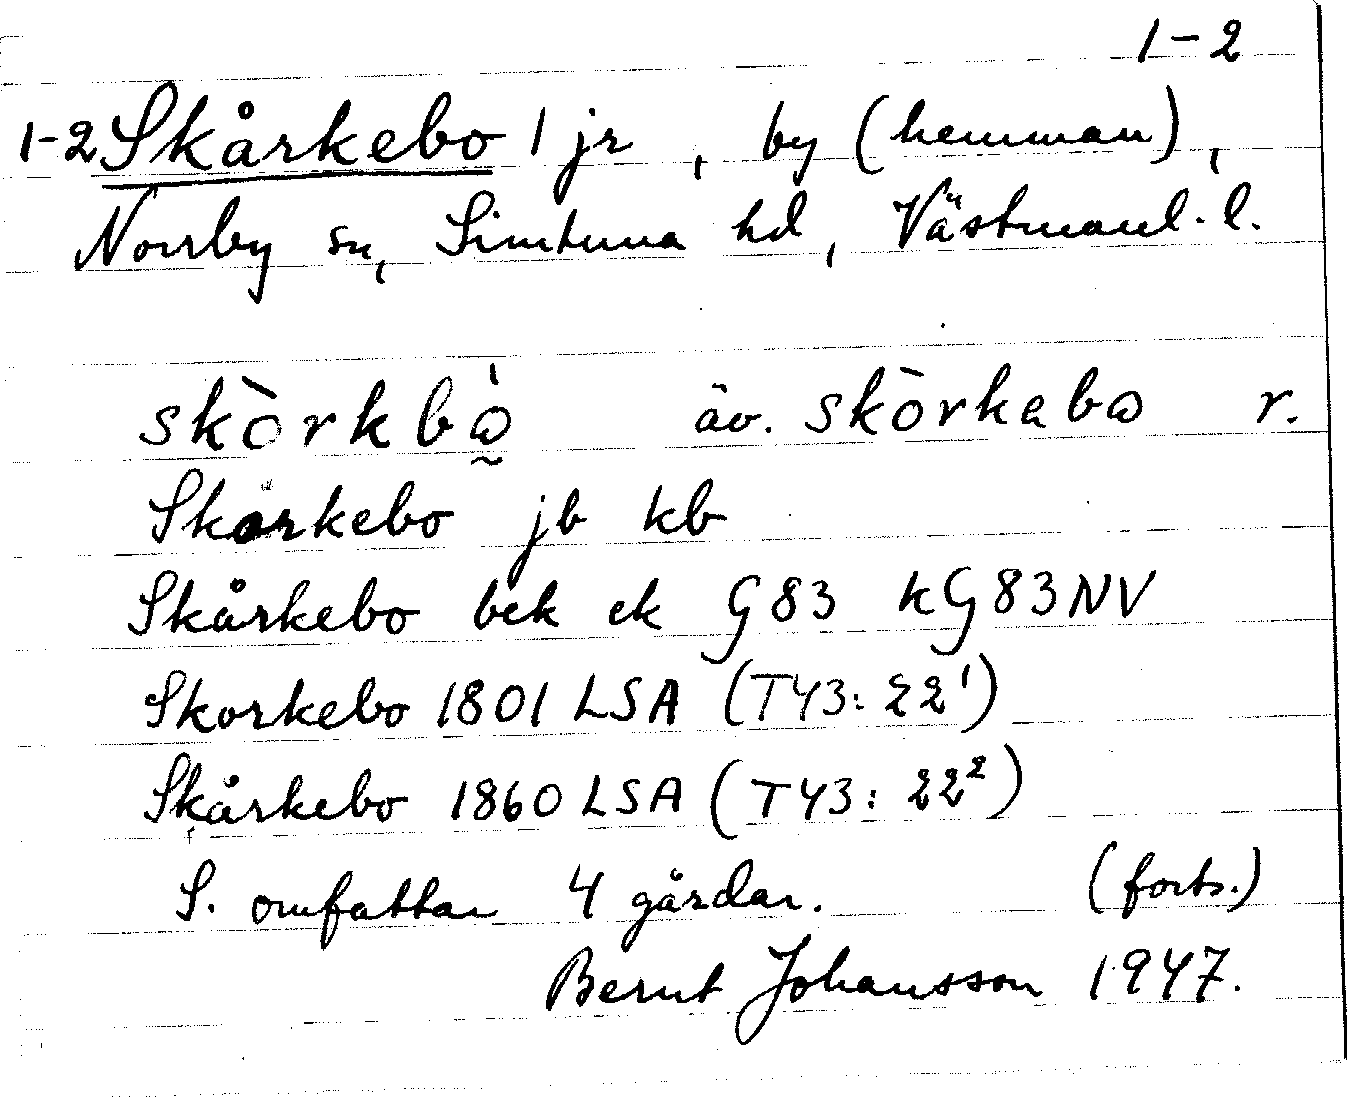 1-2
1-2 Skårkebo 1 jr , by (hemman),
Norrby sn, Simtuna hd, Västmanl. l.
skòrkbò̰ äv. skòrkebo r.
Skårkebo jb kb
Skårkebo bek ek G83 kG83NV
Skorkebo 1801 LSA (T43: 22¹)
Skårkebo 1860 LSA (T43: 22²)
S. omfattar 4 gårdar. (forts.)
Bernt Johansson 1947.